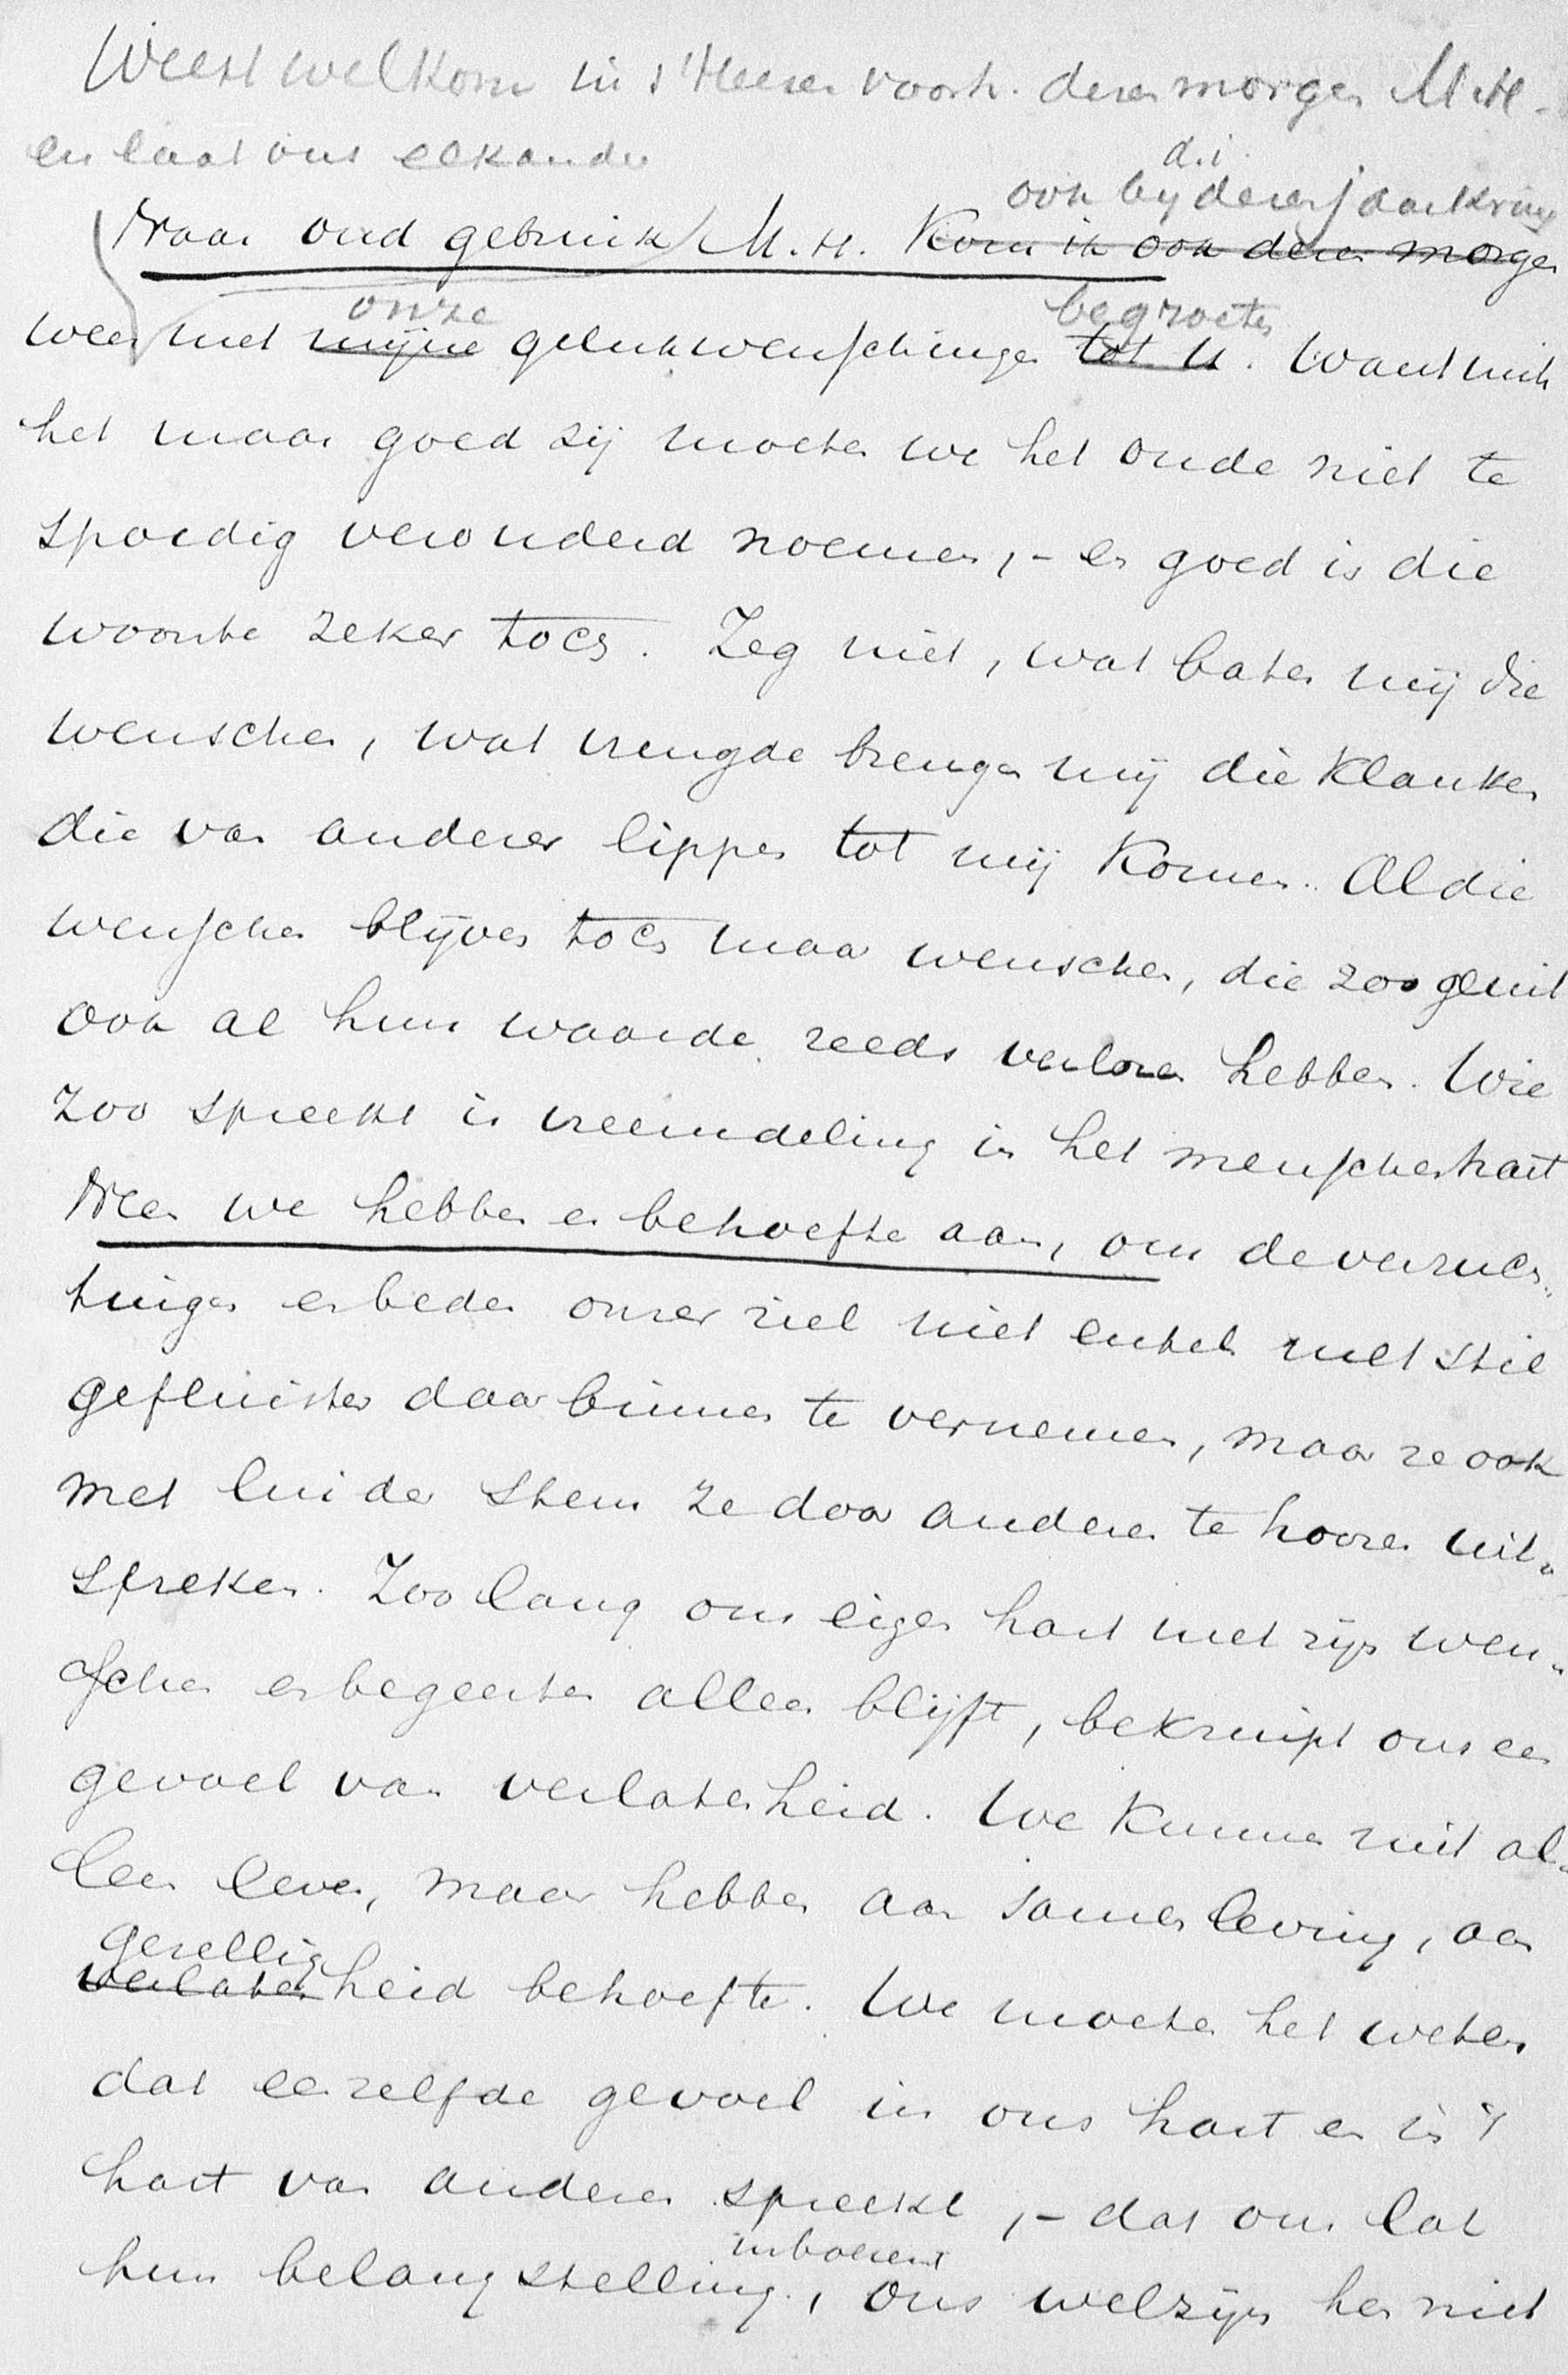 Weest welkom in 's Heeren voorh. dezen morgen M.H.
en laat ons elkander
d.i.
ook bij dezen jaarkring
Naar oud gebruik M.H. kom ik ook dezen morgen
onze begroeten
weer met mijne gelukwenschingen tot u. Want mits
het maar goed zij moeten we het oude niet te
spoedig verouderd noemen, - en goed is die
woonte zeker toch. Zeg niet, wat baten mij die
wenschen, wat vreugde brengen mij die klanken
die van anderer lippen tot mij komen. Al die
wenschen blijven toch maar wenschen, die zoo geuit
ook al hun waarde reeds verloren hebben. Wie
zoo spreekt is vreemdeling in het menschenhart
Neen we hebben er behoefte aan, om de verzuch-
tingen en beden onzer ziel niet enkel met stil
gefluister daar binnen te vernemen, maar ze ook
met luider stem ze door anderen te hooren uit-
spreken. Zoo lang ons eigen hart met zijn wen-
schen en begeerten alleen blijft, bekruipt ons een
gevoel van verlatenheid. We kunnen niet al-
leen leven, maar hebben aan samenleving, aan
gezellig
verlatenheid behoefte. We moeten het weten
dat eenzelfde gevoel in ons hart en in 't
hart van anderen spreekt, - dat ons lot
inboezemt
hun belangstelling, ons welzijn hen niet